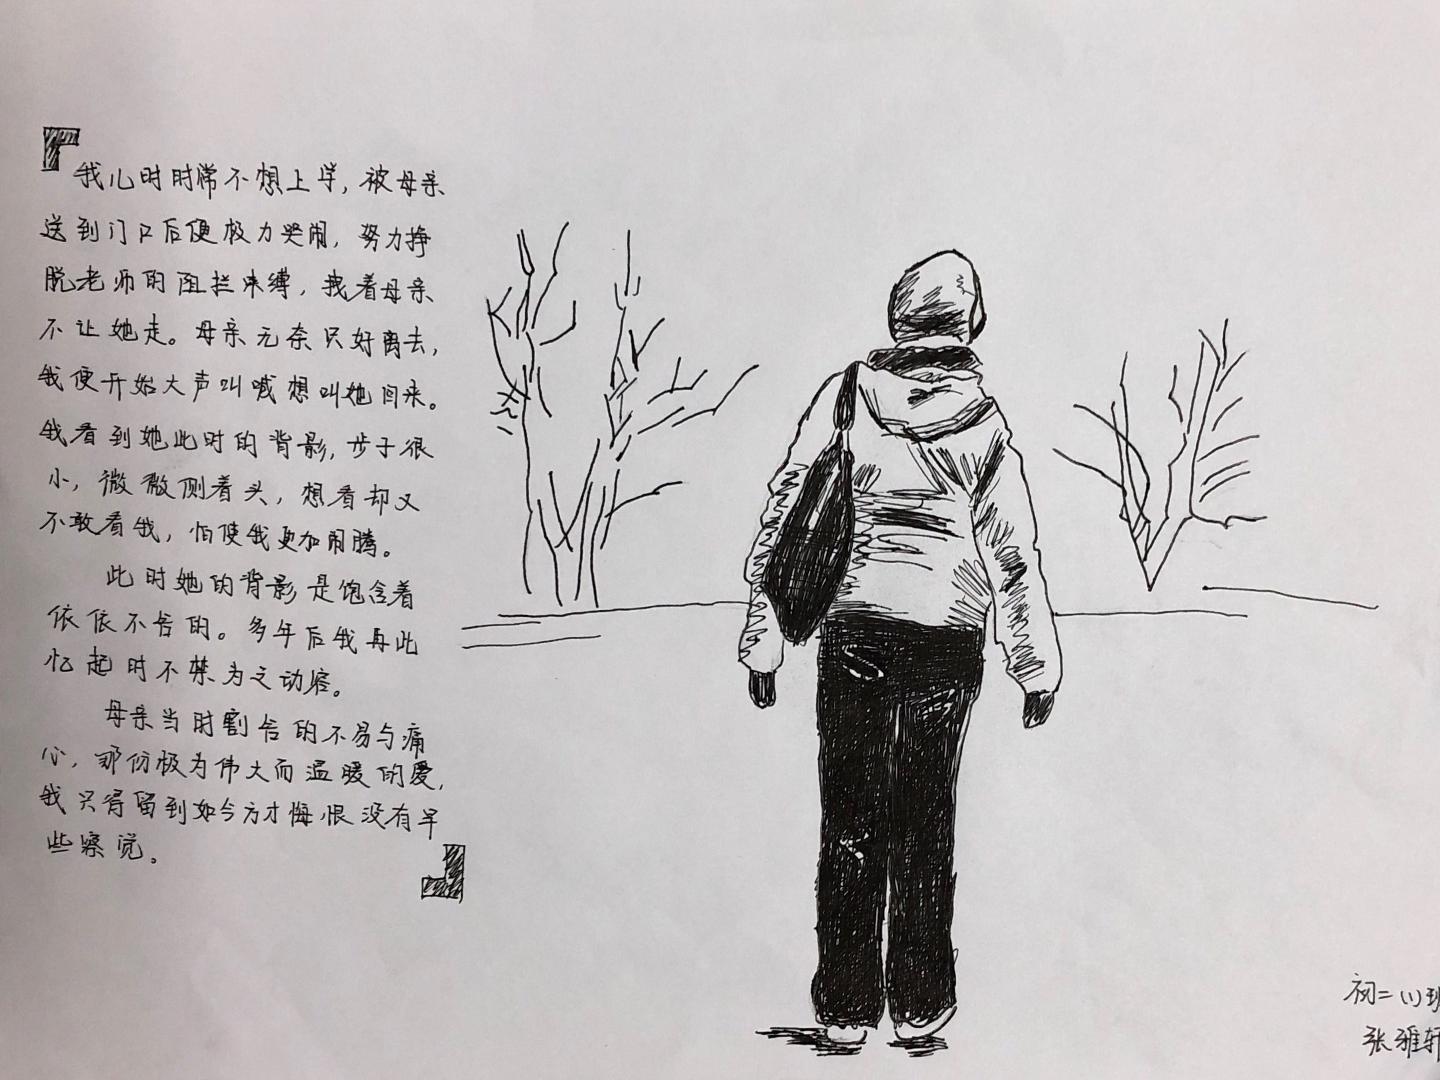 我儿时时常不想上学，被母亲
送到门口后便极力哭闹，努力挣
脱老师的阻拦束缚，我着母亲
不让她走。母亲无奈只好离去，
我便开始大声叫喊想叫她回来。
我看到她此时的背影，步子很
小，微微侧着头，想看却又
不敢看我，怕使我更加闹腾。
此时她的背影是饱含着
依依不舍的。多年后我再此
忆起时不禁为之动容。
母亲当时割舍的不易与痛
心，那份极为伟大而温暖的爱，
我只得留到如今方才悔恨没有早
些察觉。
初二(1)班
张雅轩